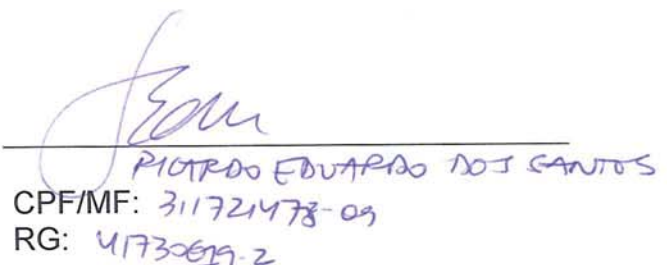 RICARDO EDUARDO DOS SANTOS
CPF/MF: 311721478-09
RG: 41730619-2